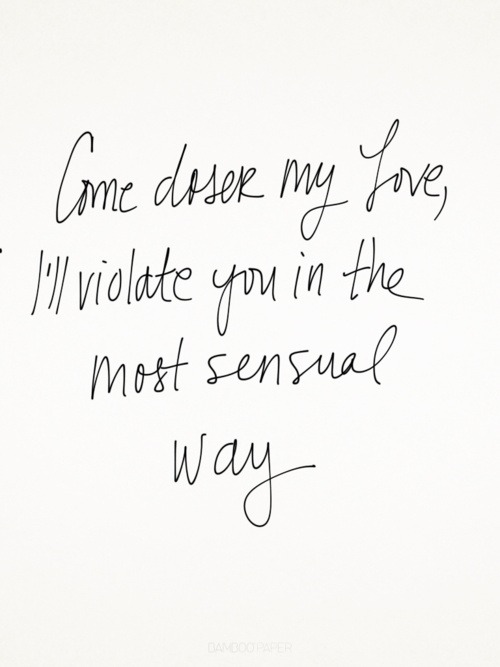 Come closer my Love,
I'll violate you in the
most sensual
way
BAMBOO PAPER